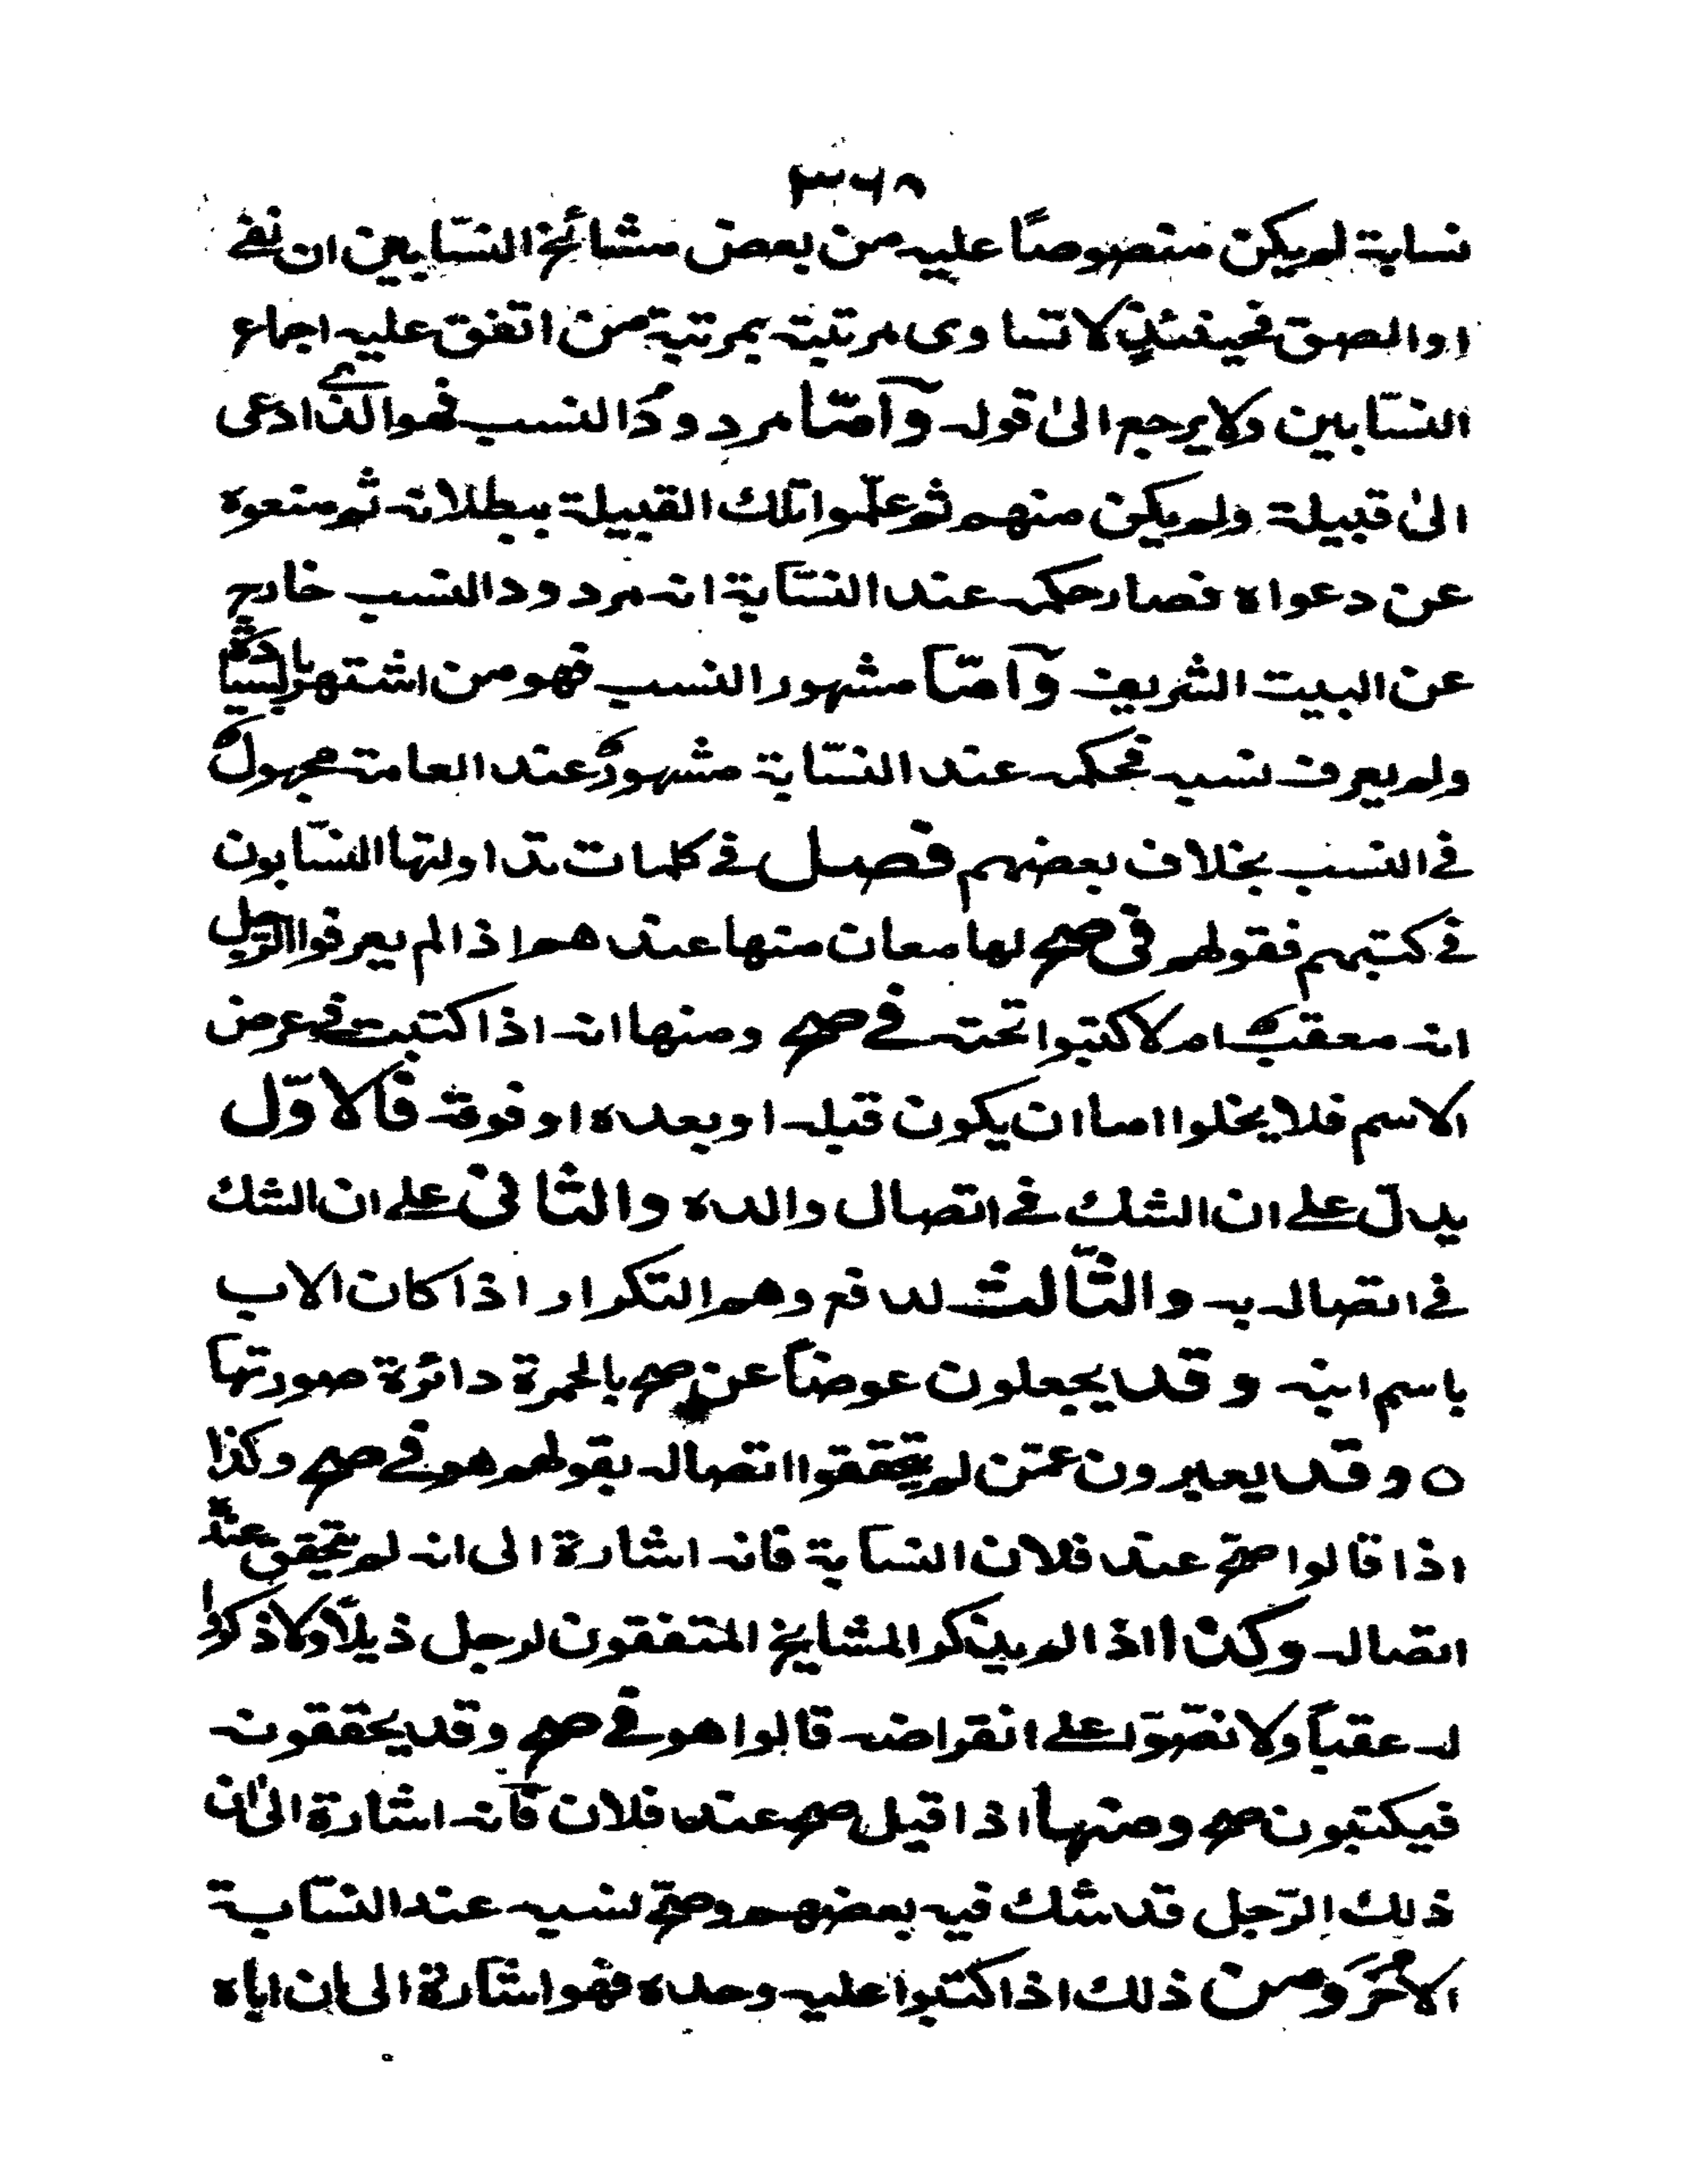 ٣٦٨
نسابة لم يكن منصوصاً عليه من بعض مشائخ النسّابين ان نفى
او الصق فحينئذٍ لا تساوى مرتبته بمرتبة من اتفق عليه اجماع
النسّابين ولا يرجع الىٰ قوله وآمّا مردودُ النسب فهو الذى ادعى
الىٰ قبيلة ولم يكن منهم ثم علموا تلك القبيلة ببطلانه ثم منعوه
عن دعواه فصار حكمه عند النسّابة انه مردود النسب خارج
عن البيت الشريف وآمّا مشهور النسب فهو من اشتهر بالسيادة
ولم يعرف نسبه فحكمه عند النسّابة مشهورٌ عند العامة مجهولٌ
فى النسب بخلاف بعضهم فصل فى كلمات تداولتها النسّابون
فى كتبهم فقولهم فى صح لها معان منها عندهم اذا لم يعرفوا الرّجل
انه معقبٌ ام لا كتبوا تحته فى صح ومنها انه اذا كتبت فى عرض
الاسم فلا يخلوا اما ان يكون قبله او بعده او فوقه فالاوّل
يدلّ على ان الشك فى اتصال والده والثانى على ان الشك
فى اتصاله به والثّالث لدافع وهم التكرار اذا كان الاب
باسم ابنه وقد يجعلون عوضاً عن صح بالحمرة دائرة صورتها
ه وقد يعبرون عمّن لم يتحققوا اتصاله بقولهم هو فى صح وكذا
اذا قالوا صحّ عند فلان النسابة فانه اشارة الى انه لم يتحقق عنده
اتصاله وكذا اذا لم يذكر المشايخ المتفقون لرجل ذيلاً ولا ذكروا
له عقباً ولا نصّوا على انقراضه قالوا هو فى صح وقد يحققونه
فيكتبون صح ومنها اذا قيل صح عند فلان فآنه اشارة الىٰ ان
ذلك الرّجل قد شك فيه بعضهم وصحّ نسبه عند النسّابة
الآخَرُ ومن ذلك اذا كتبوا عليه وحده فهو اشارة الى ان اباه